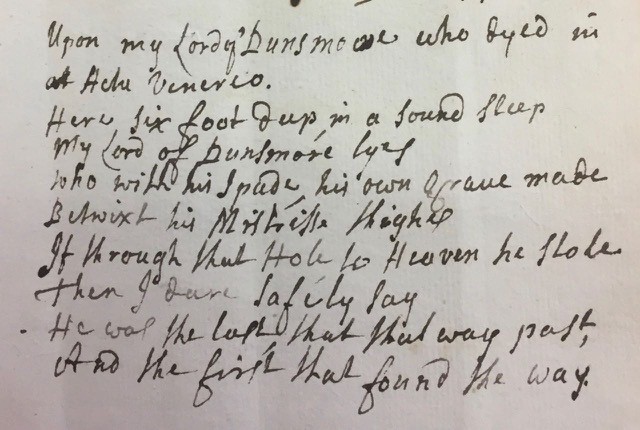 Upon my Lord Dunsmore who dyed in
at Actu Venereo.
Here six foot deep in a sound sleep
My Lord of Dunsmore lyes
who with his spade, his own Grave made
Betwixt his Mistrisse thighes
If through that Hole to Heaven he stole
Then I dare safely say
He was the last, that that way past,
And the first that found the way.